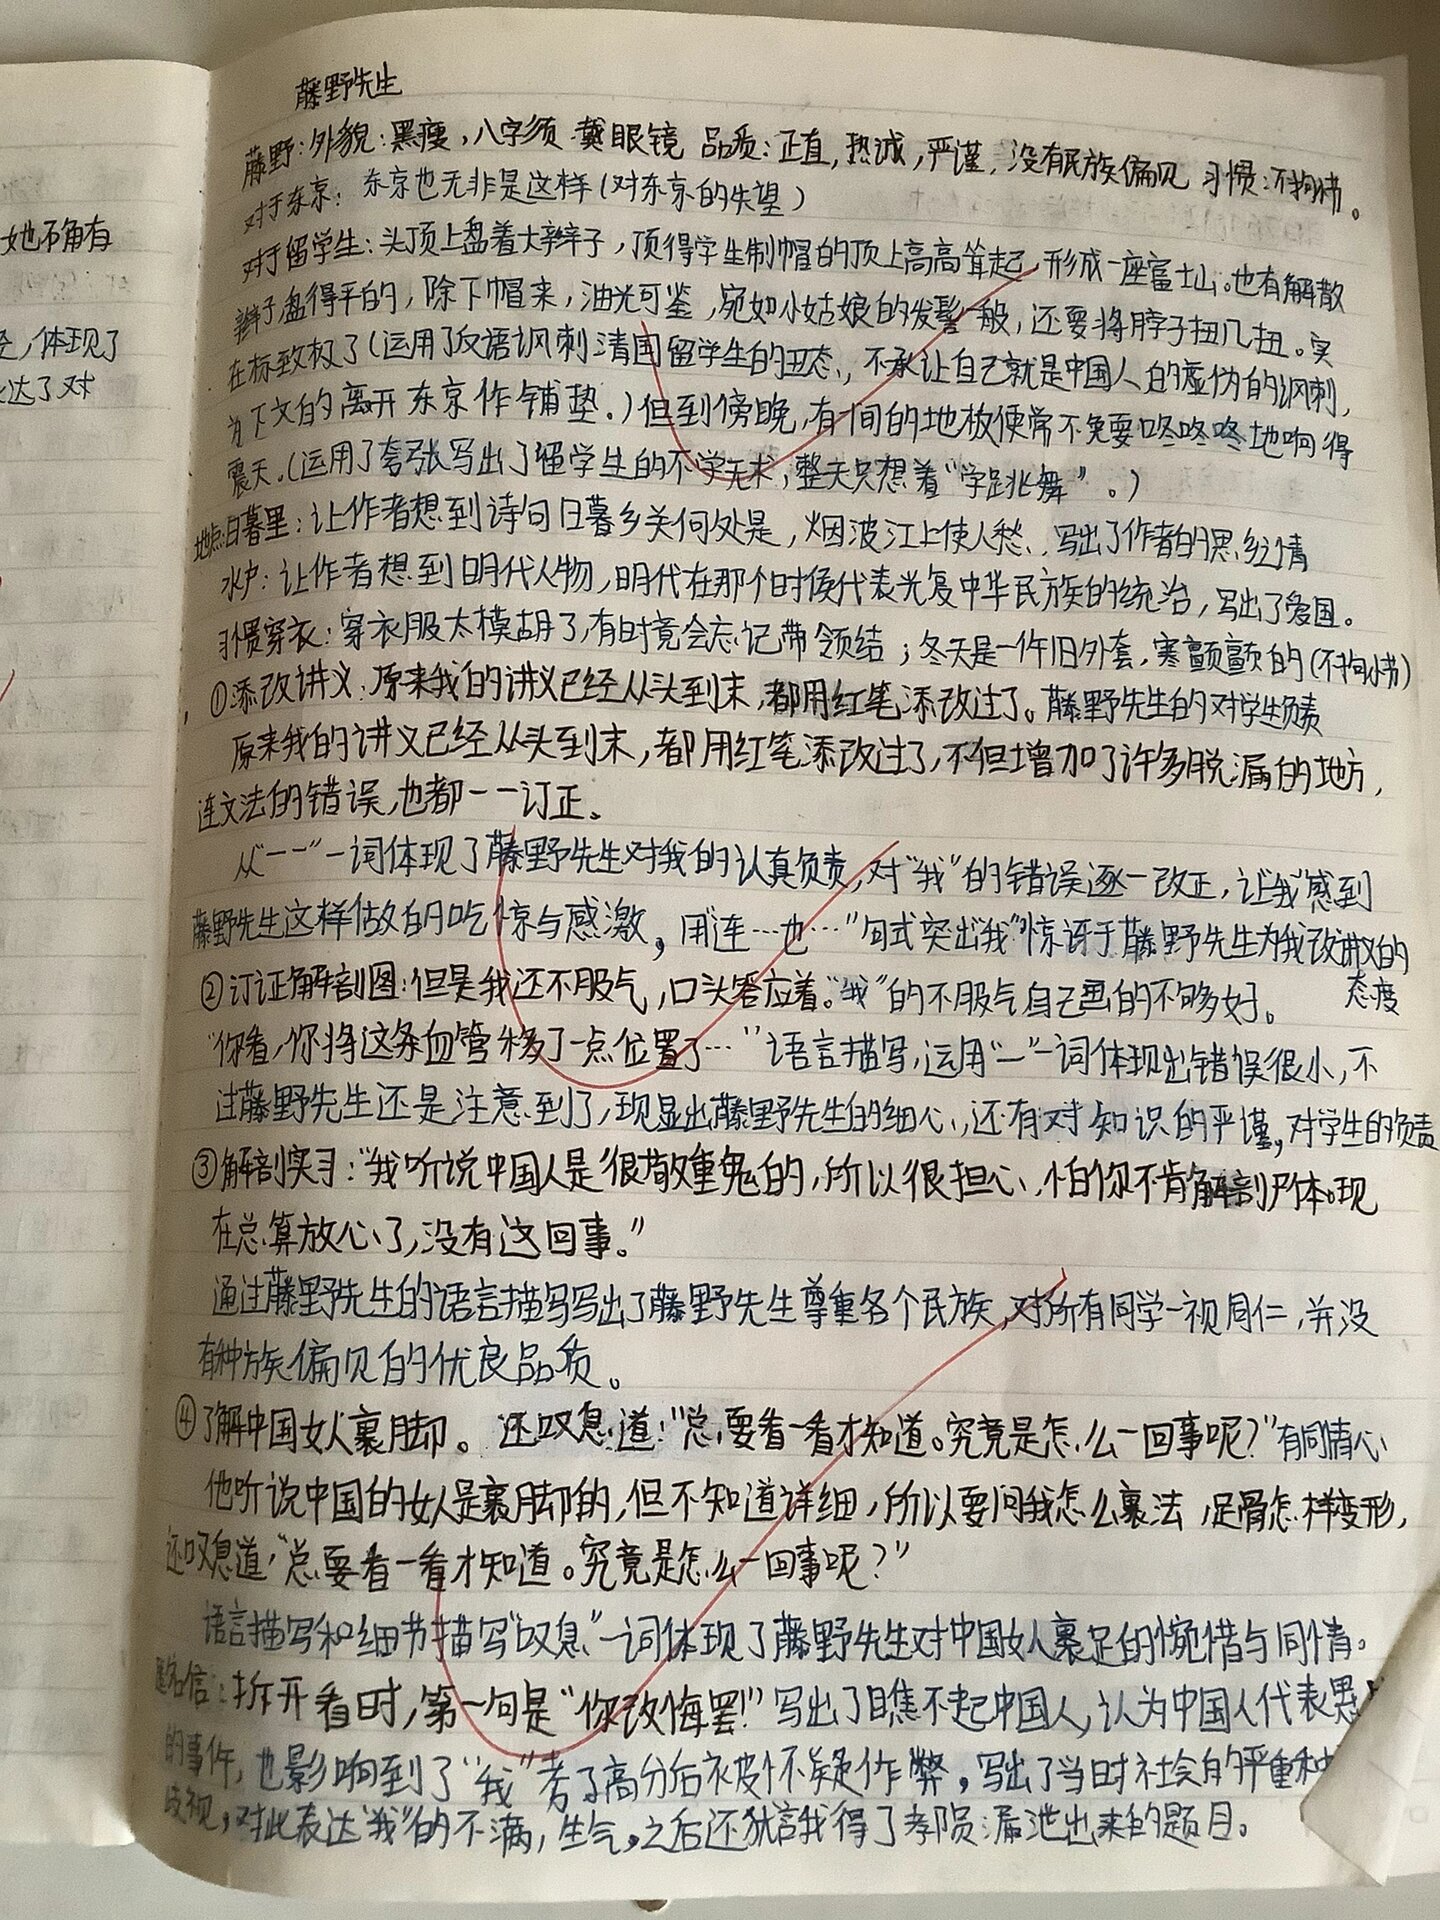 藤野先生
藤野：外貌：黑瘦，八字须 戴眼镜 品质：正直，热诚，严谨，没有民族偏见 习惯：不拘小节。
对于东京：东京也无非是这样（对东京的失望）
对于留学生：头顶上盘着大辫子，顶得学生制帽的顶上高高耸起，形成一座富士山。也有解散
辫子，盘得平的，除下帽来，油光可鉴，宛如小姑娘的发髻一般，还要将脖子扭几扭。实
在标致极了（运用了反语讽刺清国留学生的丑态，不承认自己就是中国人的虚伪的讽刺，
为下文的离开东京作铺垫。）但到傍晚，有一间的地板便常不免要咚咚咚地响得
震天。（运用了夸张写出了留学生的不学无术，整天只想着“学跳舞”。）
地点：日暮里：让作者想到诗句日暮乡关何处是，烟波江上使人愁，写出了作者的思乡情
水户：让作者想到明代人物，明代在那个时候代表光复中华民族的统治，写出了爱国。
习惯穿衣：穿衣服太模胡了，有时竟会忘记带领结；冬天是一件旧外套，寒颤颤的（不拘小节）
①添改讲义：原来我的讲义已经从头到末，都用红笔添改过了。藤野先生的对学生负责
原来我的讲义已经从头到末，都用红笔添改过了，不但增加了许多脱漏的地方，
连文法的错误，也都一一订正。
从“一一”一词体现了藤野先生对我的认真负责，对“我”的错误逐一改正，让“我”感到
藤野先生这样做的吃惊与感激，用“连…也…”句式突出“我”惊讶于藤野先生为我改讲义的
态度
②订证解剖图：但是我还不服气，口头答应着。“我”的不服气自己画的不够好。
“你看，你将这条血管移了一点位置了…”语言描写，运用“一”一词体现出错误很小，不
过藤野先生还是注意到了，现显出藤野先生的细心，还有对知识的严谨，对学生的负责
③解剖实习：“我听说中国人是很敬重鬼的，所以很担心，怕你不肯解剖尸体。现
在总算放心了，没有这回事。”
通过藤野先生的语言描写写出了藤野先生尊重各个民族，对所有同学一视同仁，并没
有种族偏见的优良品质。
④了解中国女人裹脚。还叹息道：“总要看一看才知道。究竟是怎么一回事呢？”有同情心
他听说中国的女人是裹脚的，但不知道详细，所以要问我怎么裹法，足骨怎样变形，
还叹息道，“总要看一看才知道。究竟是怎么一回事呢？”
语言描写和细节描写“叹息”一词体现了藤野先生对中国女人裹足的惋惜与同情。
匿名信：拆开看时，第一句是“你改悔罢！”写出了瞧不起中国人，认为中国人代表愚
的事件，也影响到了“我”考了高分后被怀疑作弊，写出了当时社会的严重种
歧视，对此表达“我”的不满，生气。之后还犹言我得了
漏泄出来的题目。
女也不角有
体现了
达了对